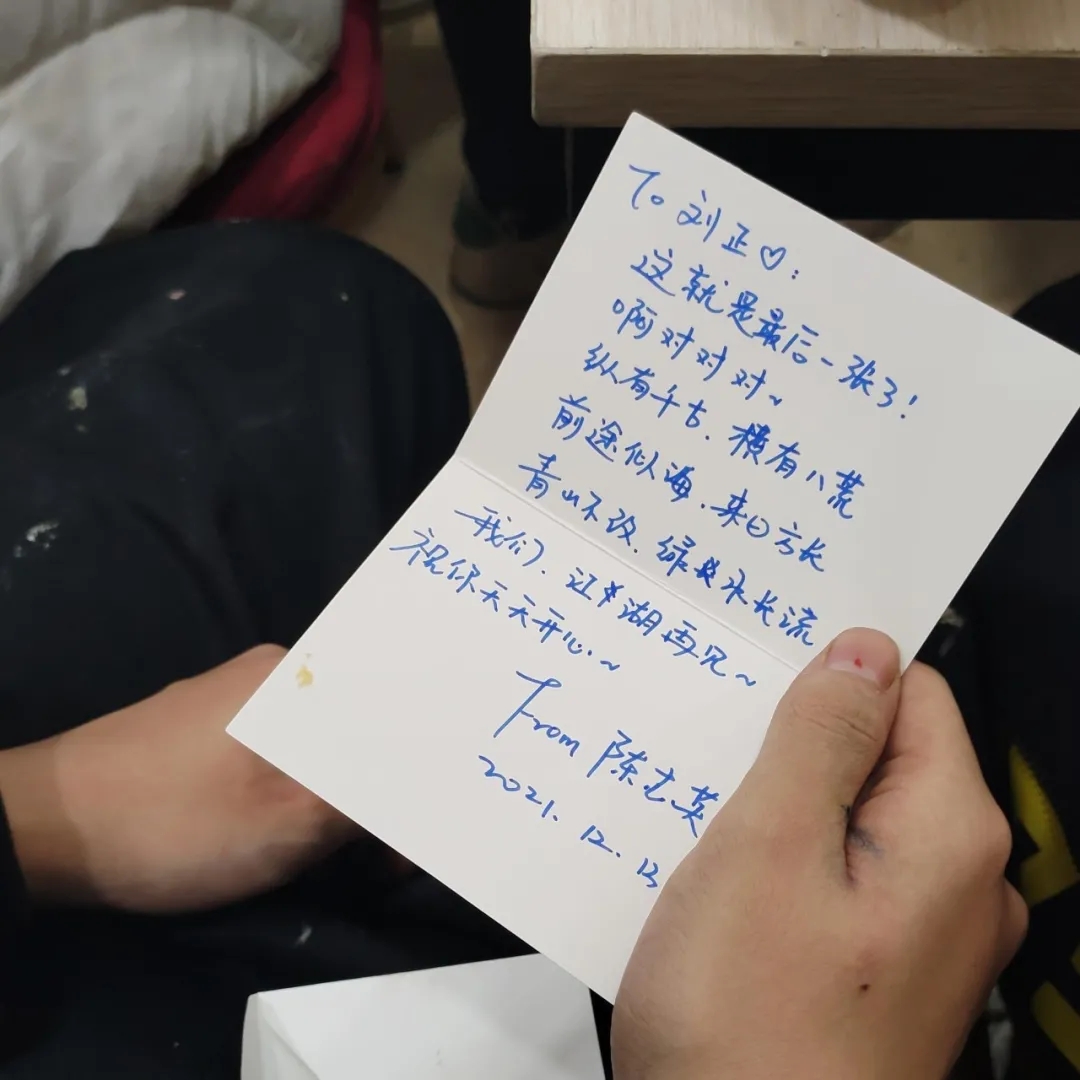 To 刘正♡:
这就是最后一张了!
啊对对对~
纵有千古,横有八荒
前途似海,来日方长
青山不改,绿水长流
我们,江湖再见~
祝你天天开心~
From 陈志英
2021.12.13